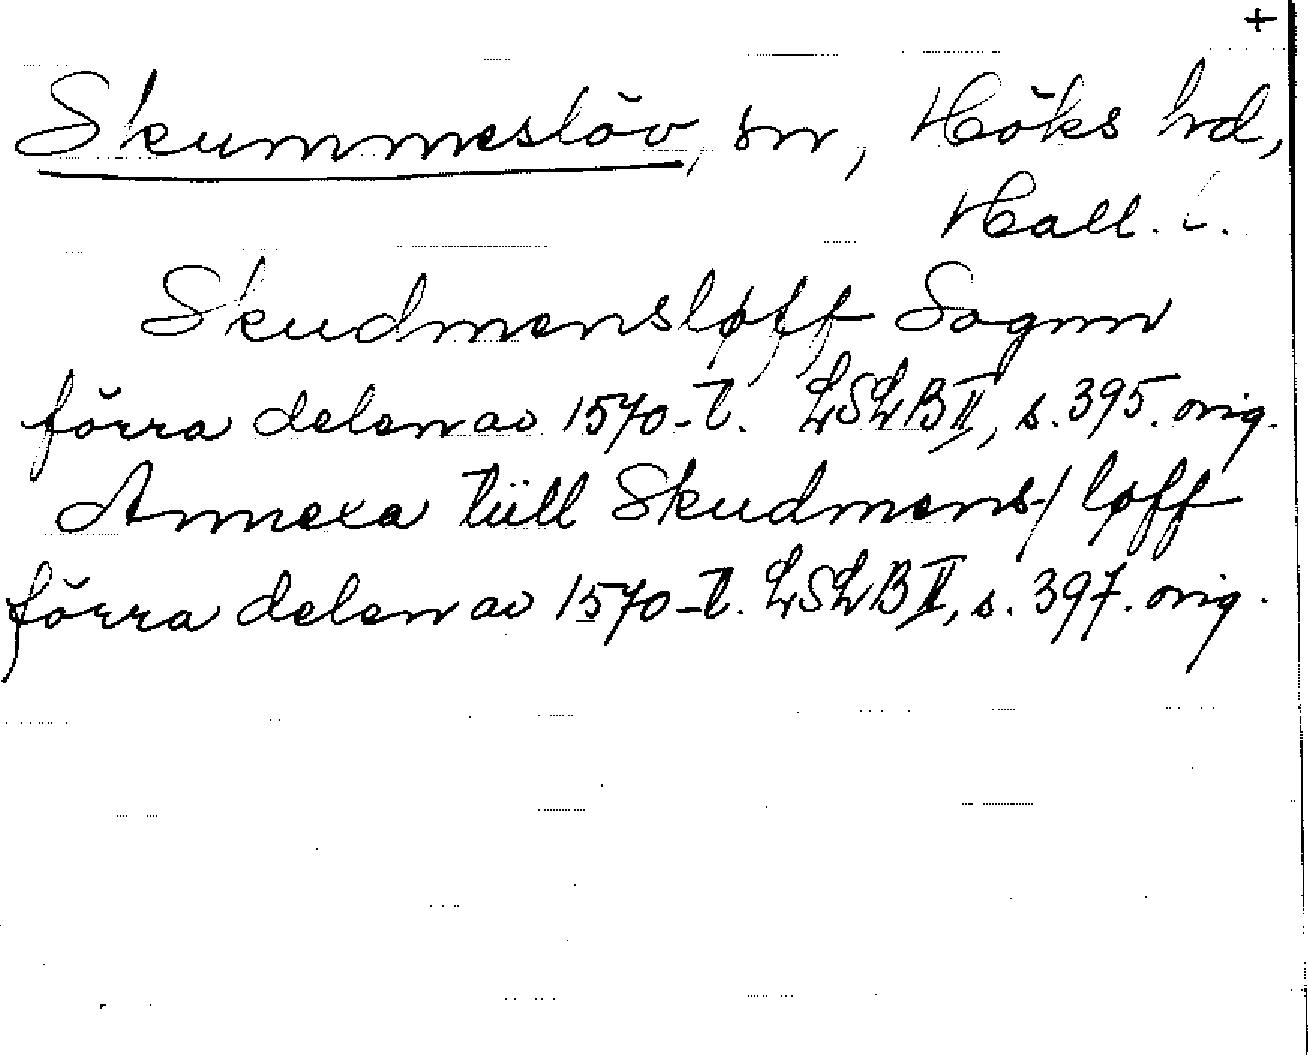 +
Skummeslöv, sn, Höks hd,
Hall. l.
Skudmensløff Sognn
förra delen av 1570-t. LSLB II, s. 395. orig.
Annexa tiill Skudmens/løff
förra delen av 1570-t. LSLB II, s. 397. orig.